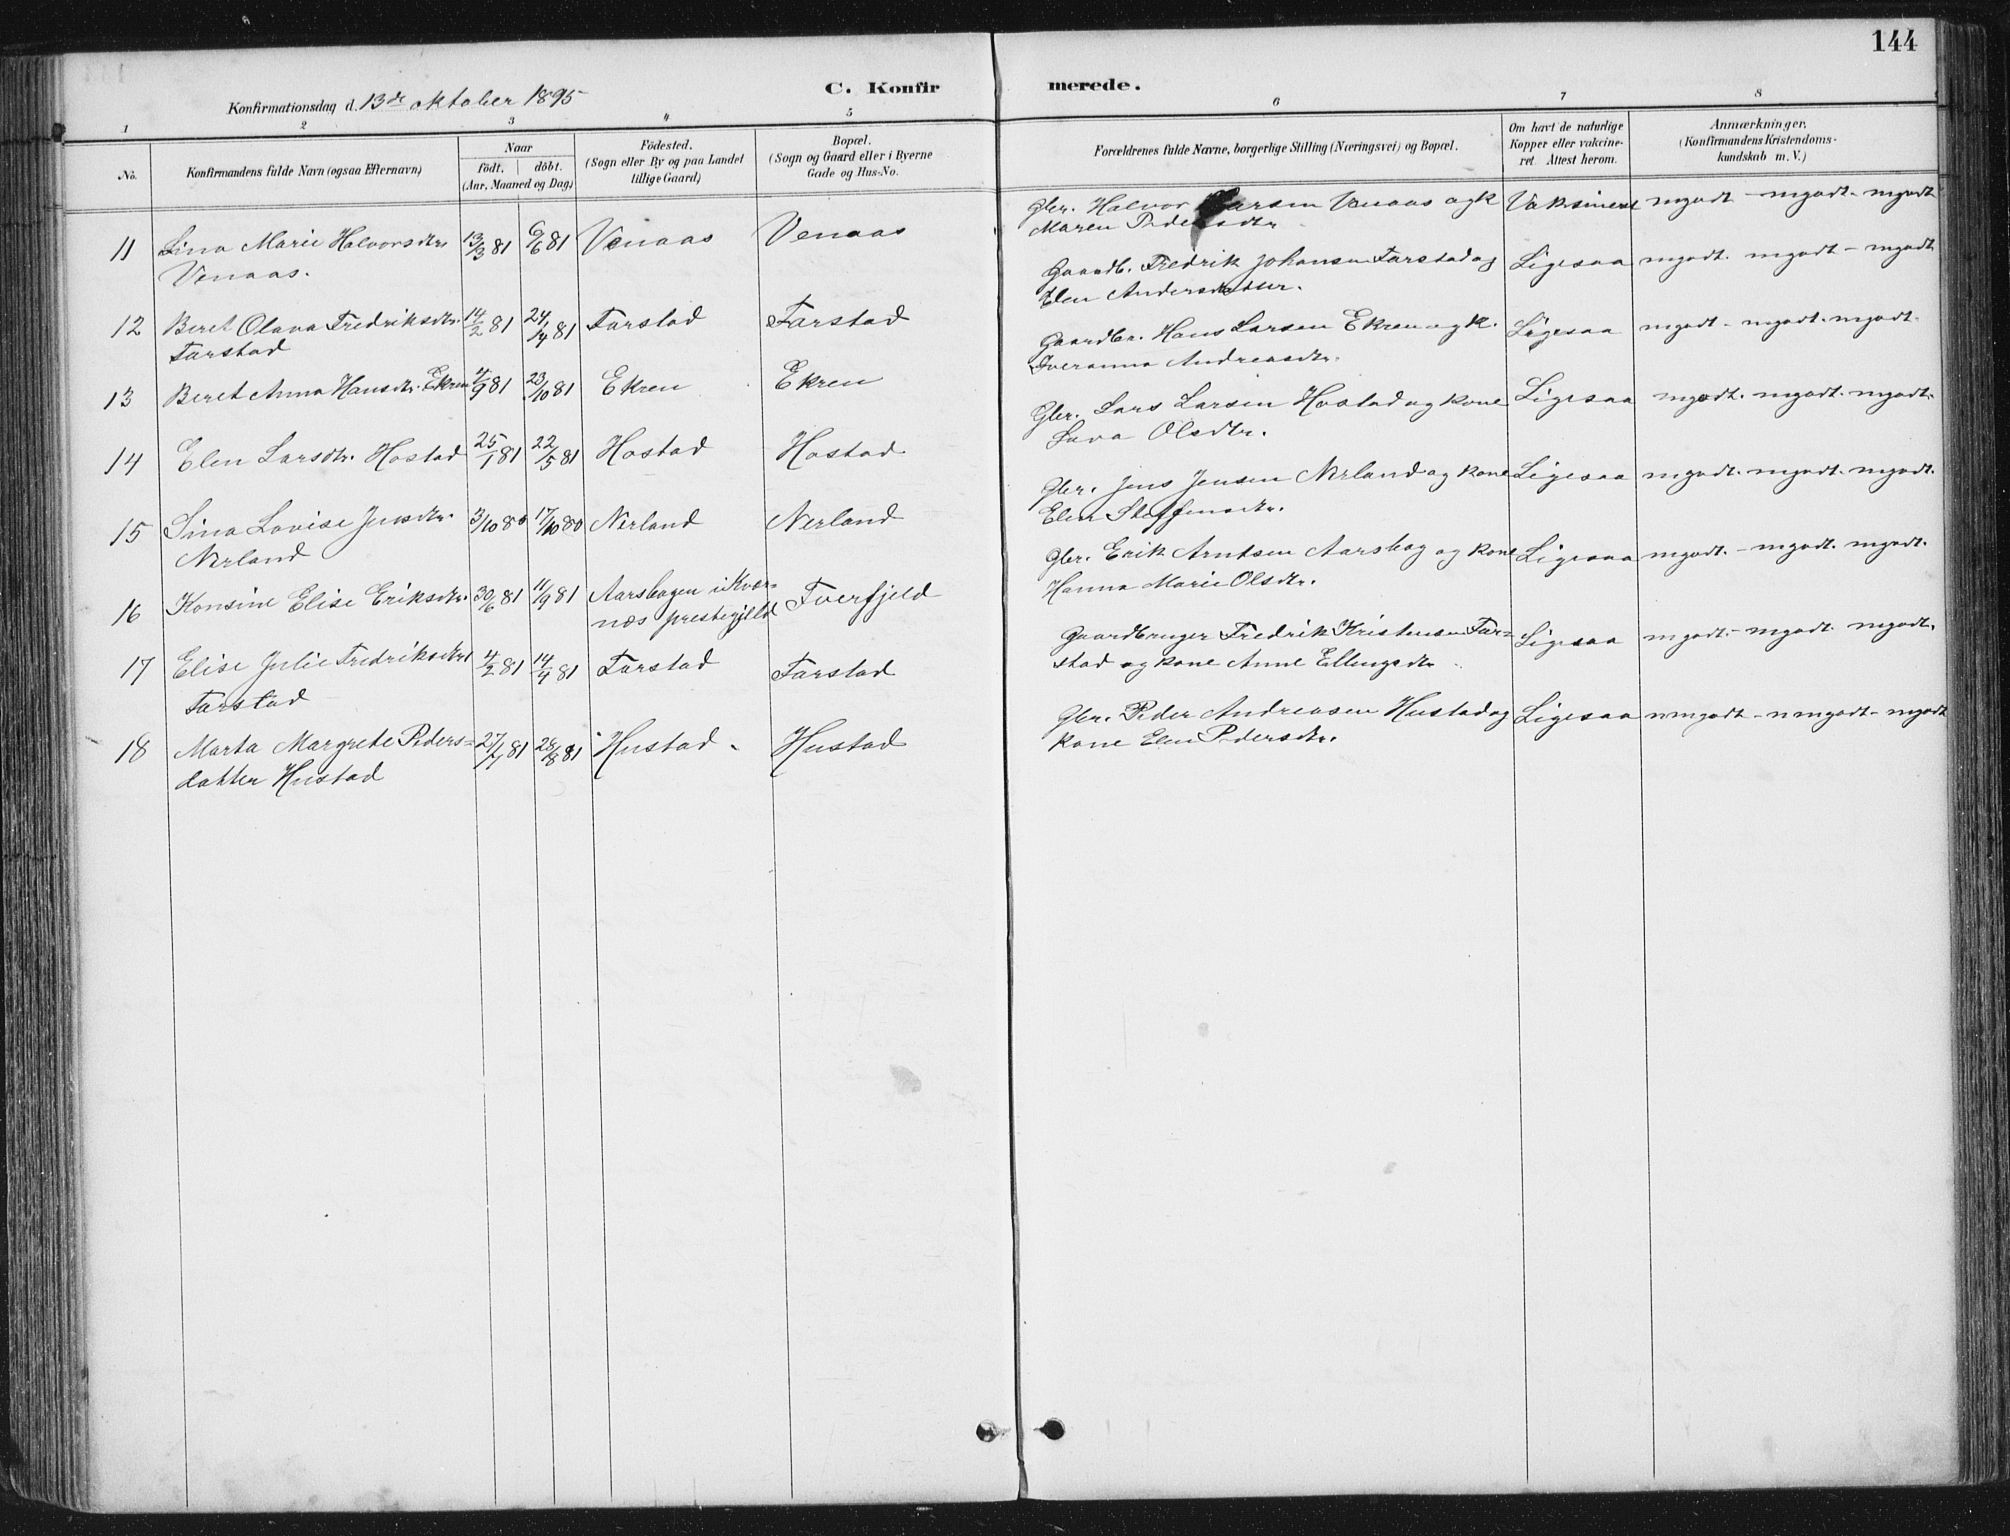 144
C. Konfirmerede.
Konfirmationsdag d. 13de oktober 1895
1 2 3 4 5 6 7 8
No.
Konfirmandens fulde Navn (ogsaa Efternavn)
Naar
födt. döbt.
(Aar, Maaned og Dag)
Födested.
(Sogn eller By og paa Landet
tillige Gaard)
Bopæl.
(Sogn og Gaard eller i Byerne
Gade og Hus-No.
Forældrenes fulde Navne, borgerlige Stilling (Næringsvei) og Bopæl.
Om havt de naturlige
Kopper eller vakcine-
ret. Attest herom.
Anmærkninger.
(Konfirmandens Kristendoms-
kundskab m. V.)
11 Lina Marie Halvorsdtr. 13/3 81 6/6 81 Venaas Venaas
Venaas.
Gbr. Halvor Larsen Venaas og k Vaksineret mgodt - mgodt - mgodt
Maren Pedersdtr
12 Beret Olava Fredriksdtr. 14/2 81 24/4 81 Farstad Farstad
Farstad
Gaardb. Fredrik Johansen Farstad og Ligesaa mgodt. mgodt - mgodt
Elen Andersdatter.
13 Beret Anna Hansdtr. Ekren 4/9 81 23/10 81 Ekren Ekren
Gaardbr. Hans Larsen Ekren og k. Ligesaa mgodt - mgodt. mgodt.
Iveranna Andreasdtr.
14 Elen Larsdtr. Hostad 25/1 81 22/5 81 Hostad Hostad
Gbr. Lars Larsen Hostad og kone Ligesaa mgodt. mgodt. mgodt.
Lava Olsdtr.
15 Sina Lovise Jensdtr. 3/10 80 17/10 80 Nerland Nerland
Nerland
Gbr. Jens Jensen Nerland og kone Ligesaa mgodt. mgodt. mgodt.
Elen Steffensdtr.
16 Konsine Elise Eriksdtr. 30/6 81 11/9 81 Aarsbogen i Kvær- Tverfjeld
nes prestegjeld
Gbr. Erik Arntsen Aarsbog og kone Ligesaa mgodt. - mgodt. mgodt.
Hanna Marie Olsdtr.
17 Elise Julie Fredriksdtr 4/2 81 14/4 81 Farstad Farstad
Farstad
Gaardbruger Fredrik Kristensen Far- Ligesaa mgodt. - mgodt. mgodt.
stad og kone Anne Ellingsdtr
18 Marta Margrete Peders- 27/7 81 28/8 81 Hustad. Hustad
datter Hustad
Gbr. Peder Andreasen Hustad og Ligesaa nmgodt - nmgodt - mgodt
kone Elen Pedersdtr.